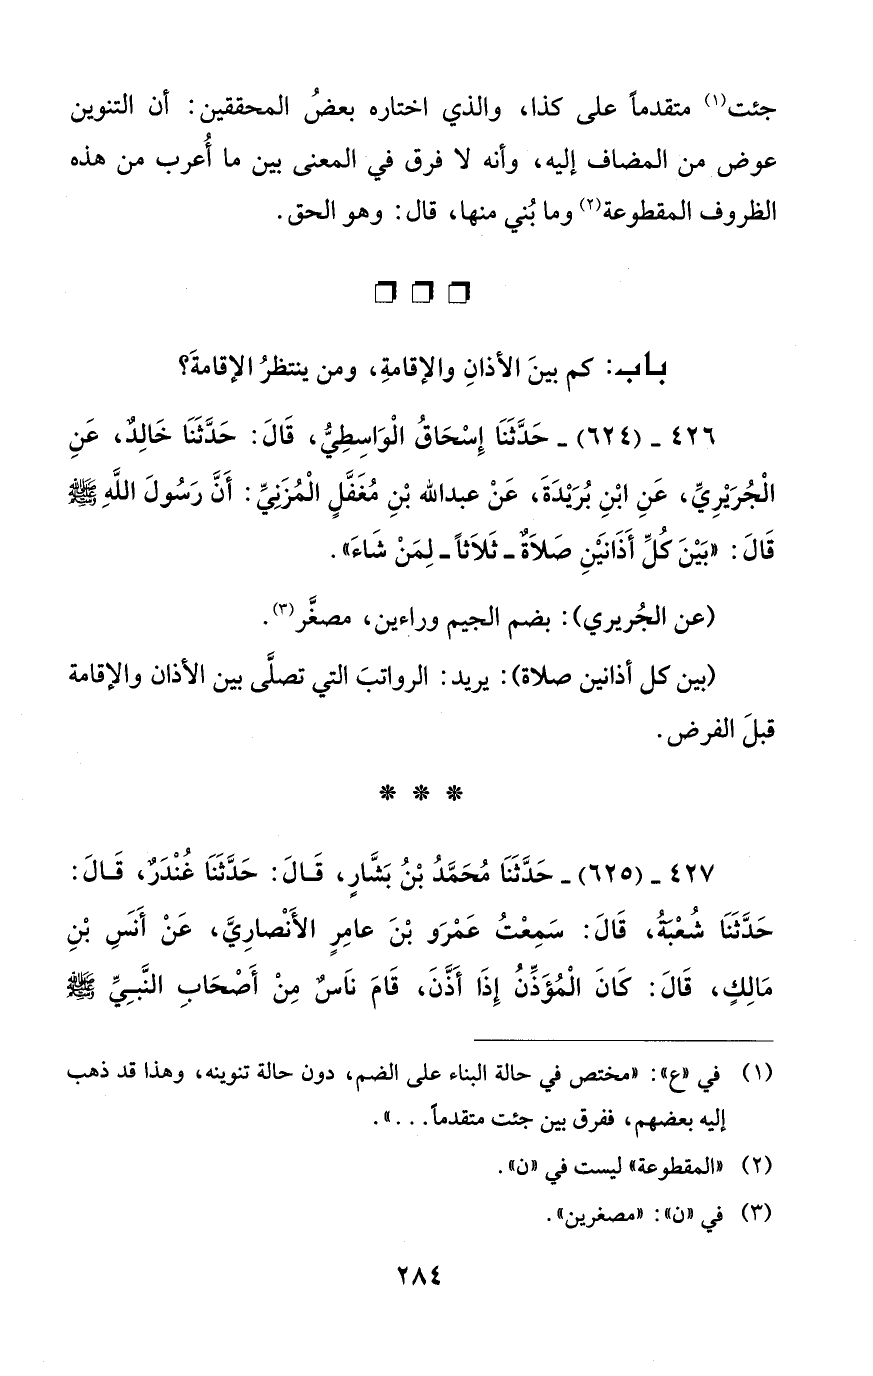 جئت(١) متقدماً على كذا، والذي اختاره بعضُ المحققين: أن التنوين
عوض من المضاف إليه، وأنه لا فرق في المعنى بين ما أُعرب من هذه
الظروف المقطوعة(٢) وما بُني منها، قال: وهو الحق.
باب: كم بينَ الأذانِ والإقامةِ، ومن ينتظرُ الإقامةَ؟
٤٢٦ ـ (٦٢٤) ـ حَدَّثَنَا إِسْحَاقُ الْوَاسِطِيُّ، قَالَ: حَدَّثَنَا خَالِدٌ، عَنِ
الْجُرَيْرِيِّ، عَنِ ابْنِ بُرَيْدَةَ، عَنْ عبدالله بْنِ مُغَفَّلٍ الْمُزَنِيِّ: أَنَّ رَسُولَ اللَّهِ ﷺ
قَالَ: «بَيْنَ كُلِّ أَذَانَيْنِ صَلاَةٌ ـ ثَلاَثاً ـ لِمَنْ شَاءَ».
(عن الجُريري): بضم الجيم وراءين، مصغَّر(٣).
(بين كل أذانين صلاة): يريد: الرواتبَ التي تصلَّى بين الأذان والإقامة
قبلَ الفرض.
* * *
٤٢٧ ـ (٦٢٥) ـ حَدَّثَنَا مُحَمَّدُ بْنُ بَشَّارٍ، قَـالَ: حَدَّثَنَا غُنْدَرٌ، قَـالَ:
حَدَّثَنَا شُعْبَةُ، قَالَ: سَمِعْتُ عَمْرَو بْنَ عامِرٍ الأَنْصارِيَّ، عَنْ أَنَسِ بْنِ
مَالِكٍ، قَالَ: كَانَ الْمُؤَذِّنُ إِذَا أَذَّنَ، قَامَ نَاسٌ مِنْ أَصْحَابِ النَّبِيِّ ﷺ
(١) في «ع»: «مختص في حالة البناء على الضم، دون حالة تنوينه، وهذا قد ذهب
إليه بعضهم، ففرق بين جئت متقدماً...».
(٢) «المقطوعة» ليست في «ن».
(٣) في «ن»: «مصغرين».
٢٨٤